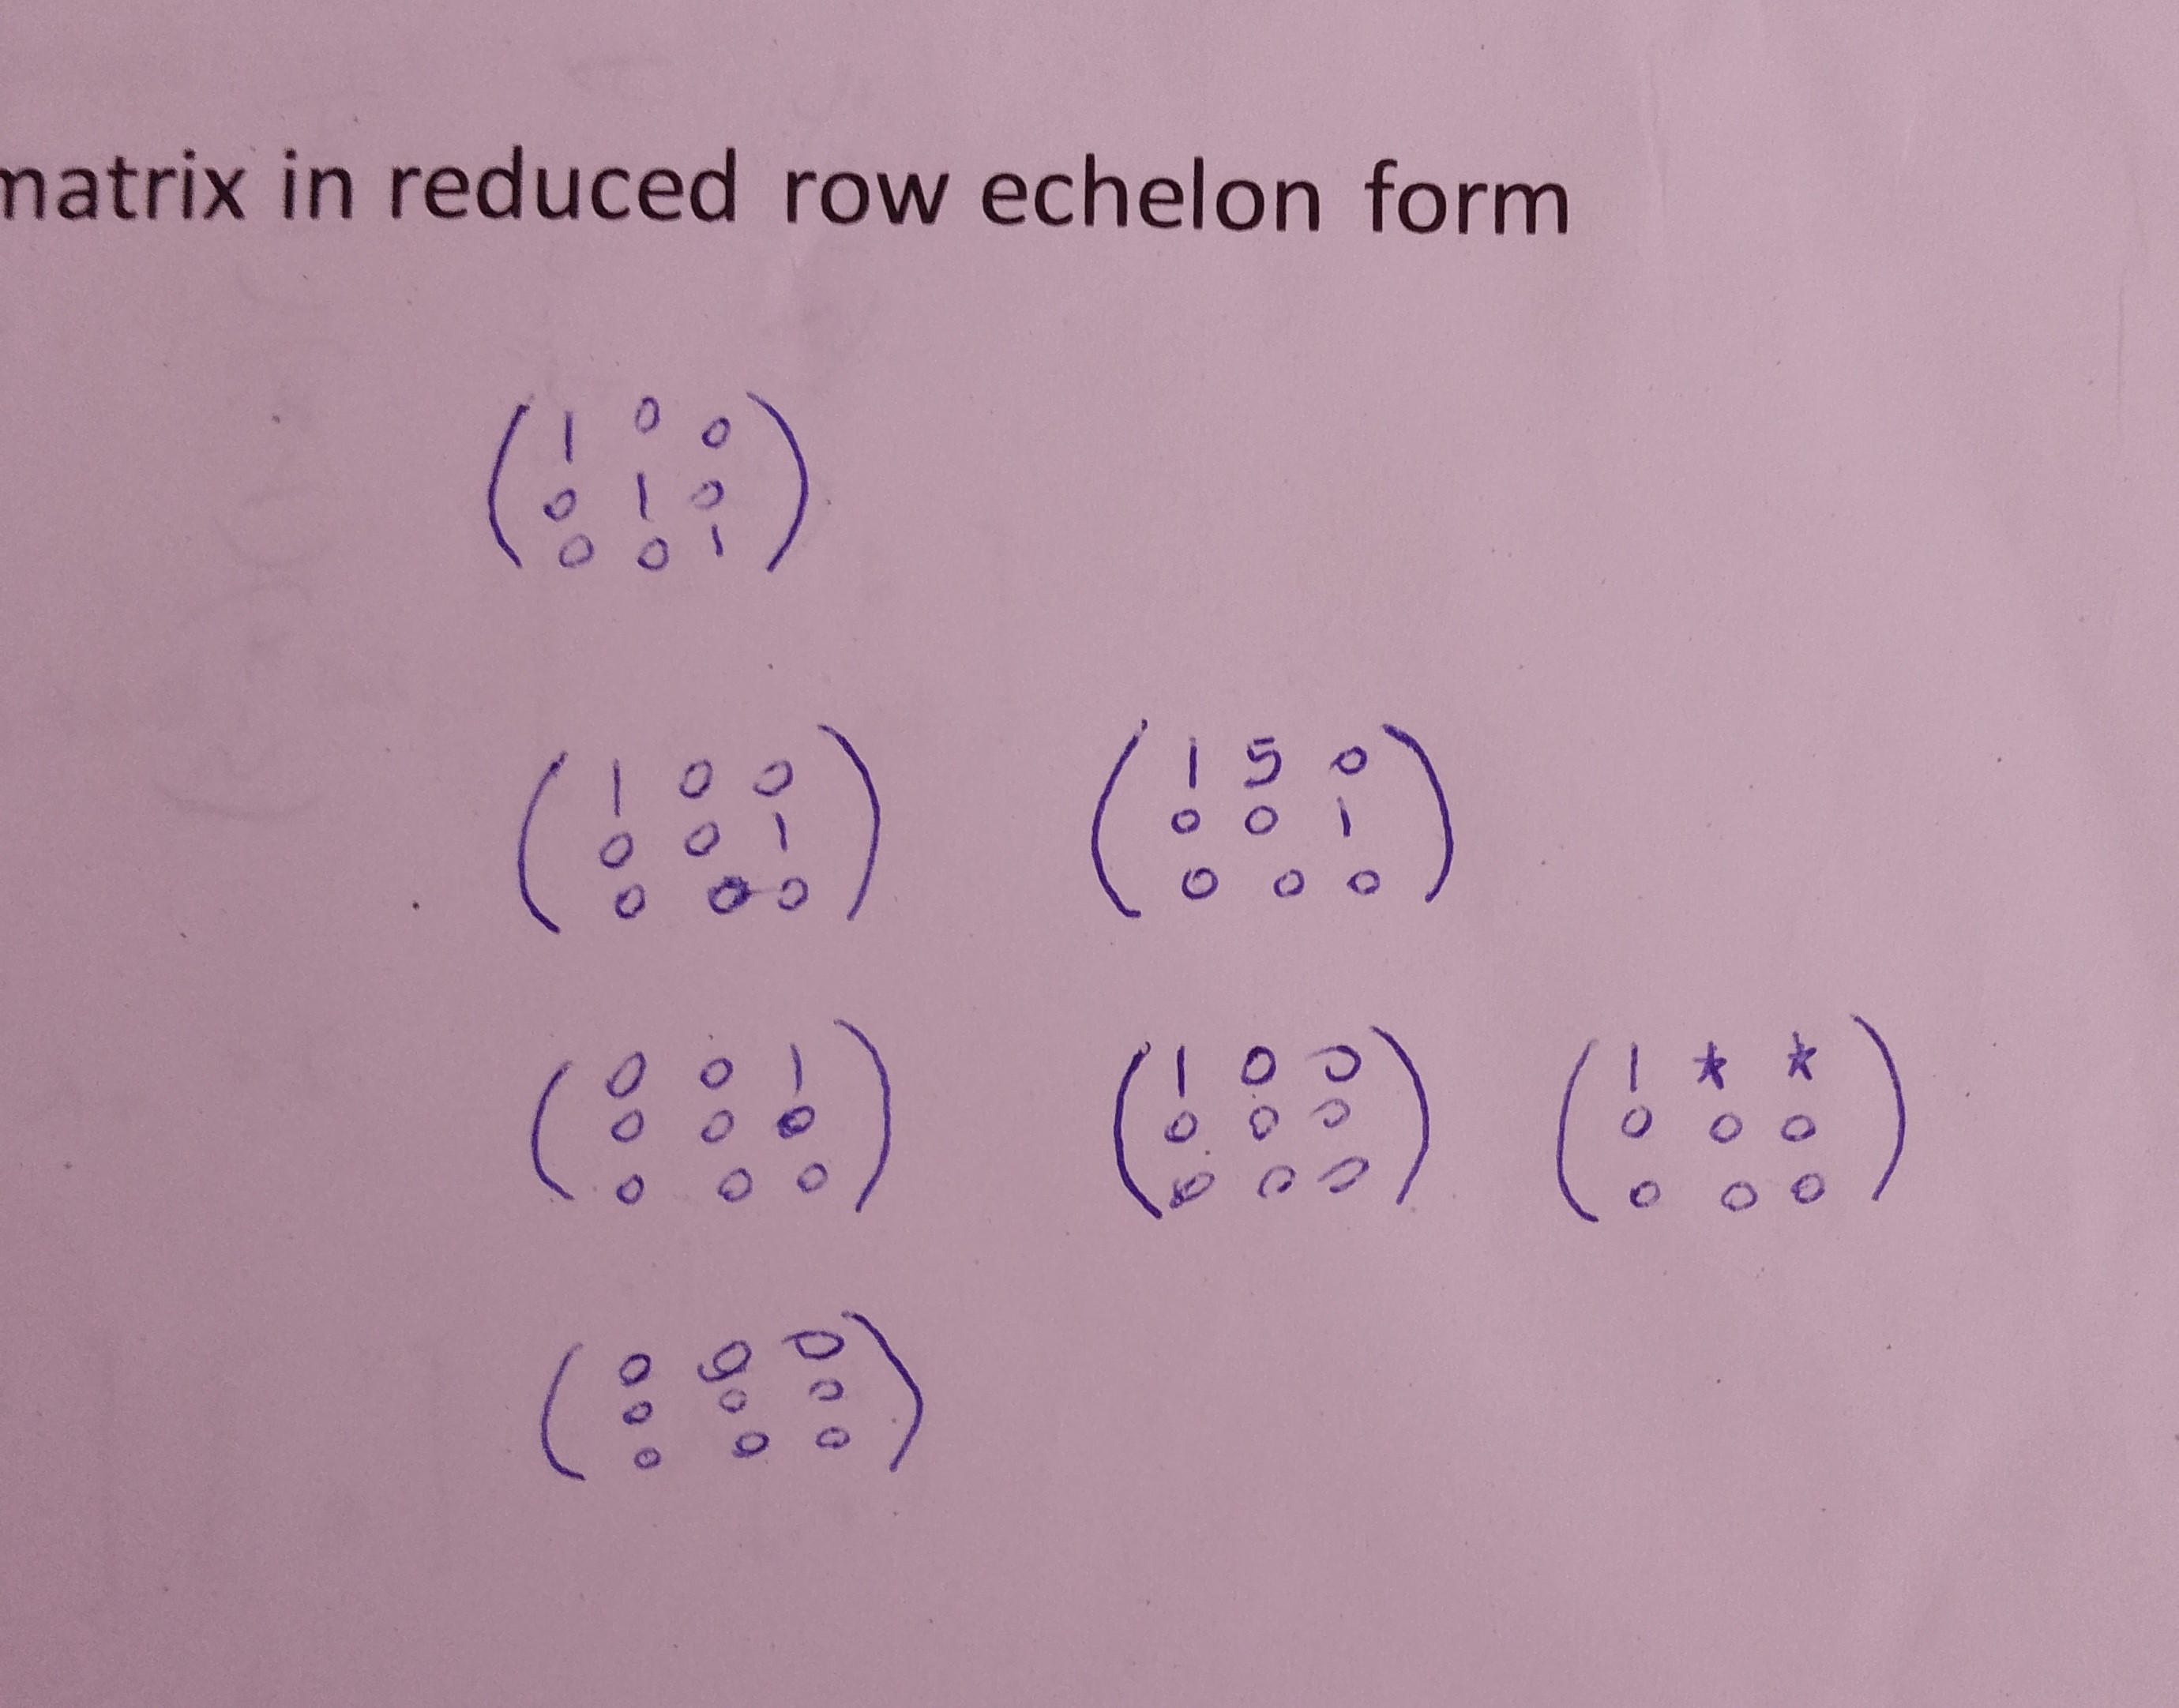 matrix in reduced row echelon form
( 1 0 0 )
( 0 1 0 )
( 0 0 1 )
( 1 0 0 ) ( 1 5 0 )
( 0 0 1 ) ( 0 0 1 )
( 0 0 0 ) ( 0 0 0 )
( 0 0 1 ) ( 1 0 0 ) ( 1 * * )
( 0 0 0 ) ( 0 0 0 ) ( 0 0 0 )
( 0 0 0 ) ( 0 0 0 ) ( 0 0 0 )
( 0 0 0 )
( 0 0 0 )
( 0 0 0 )